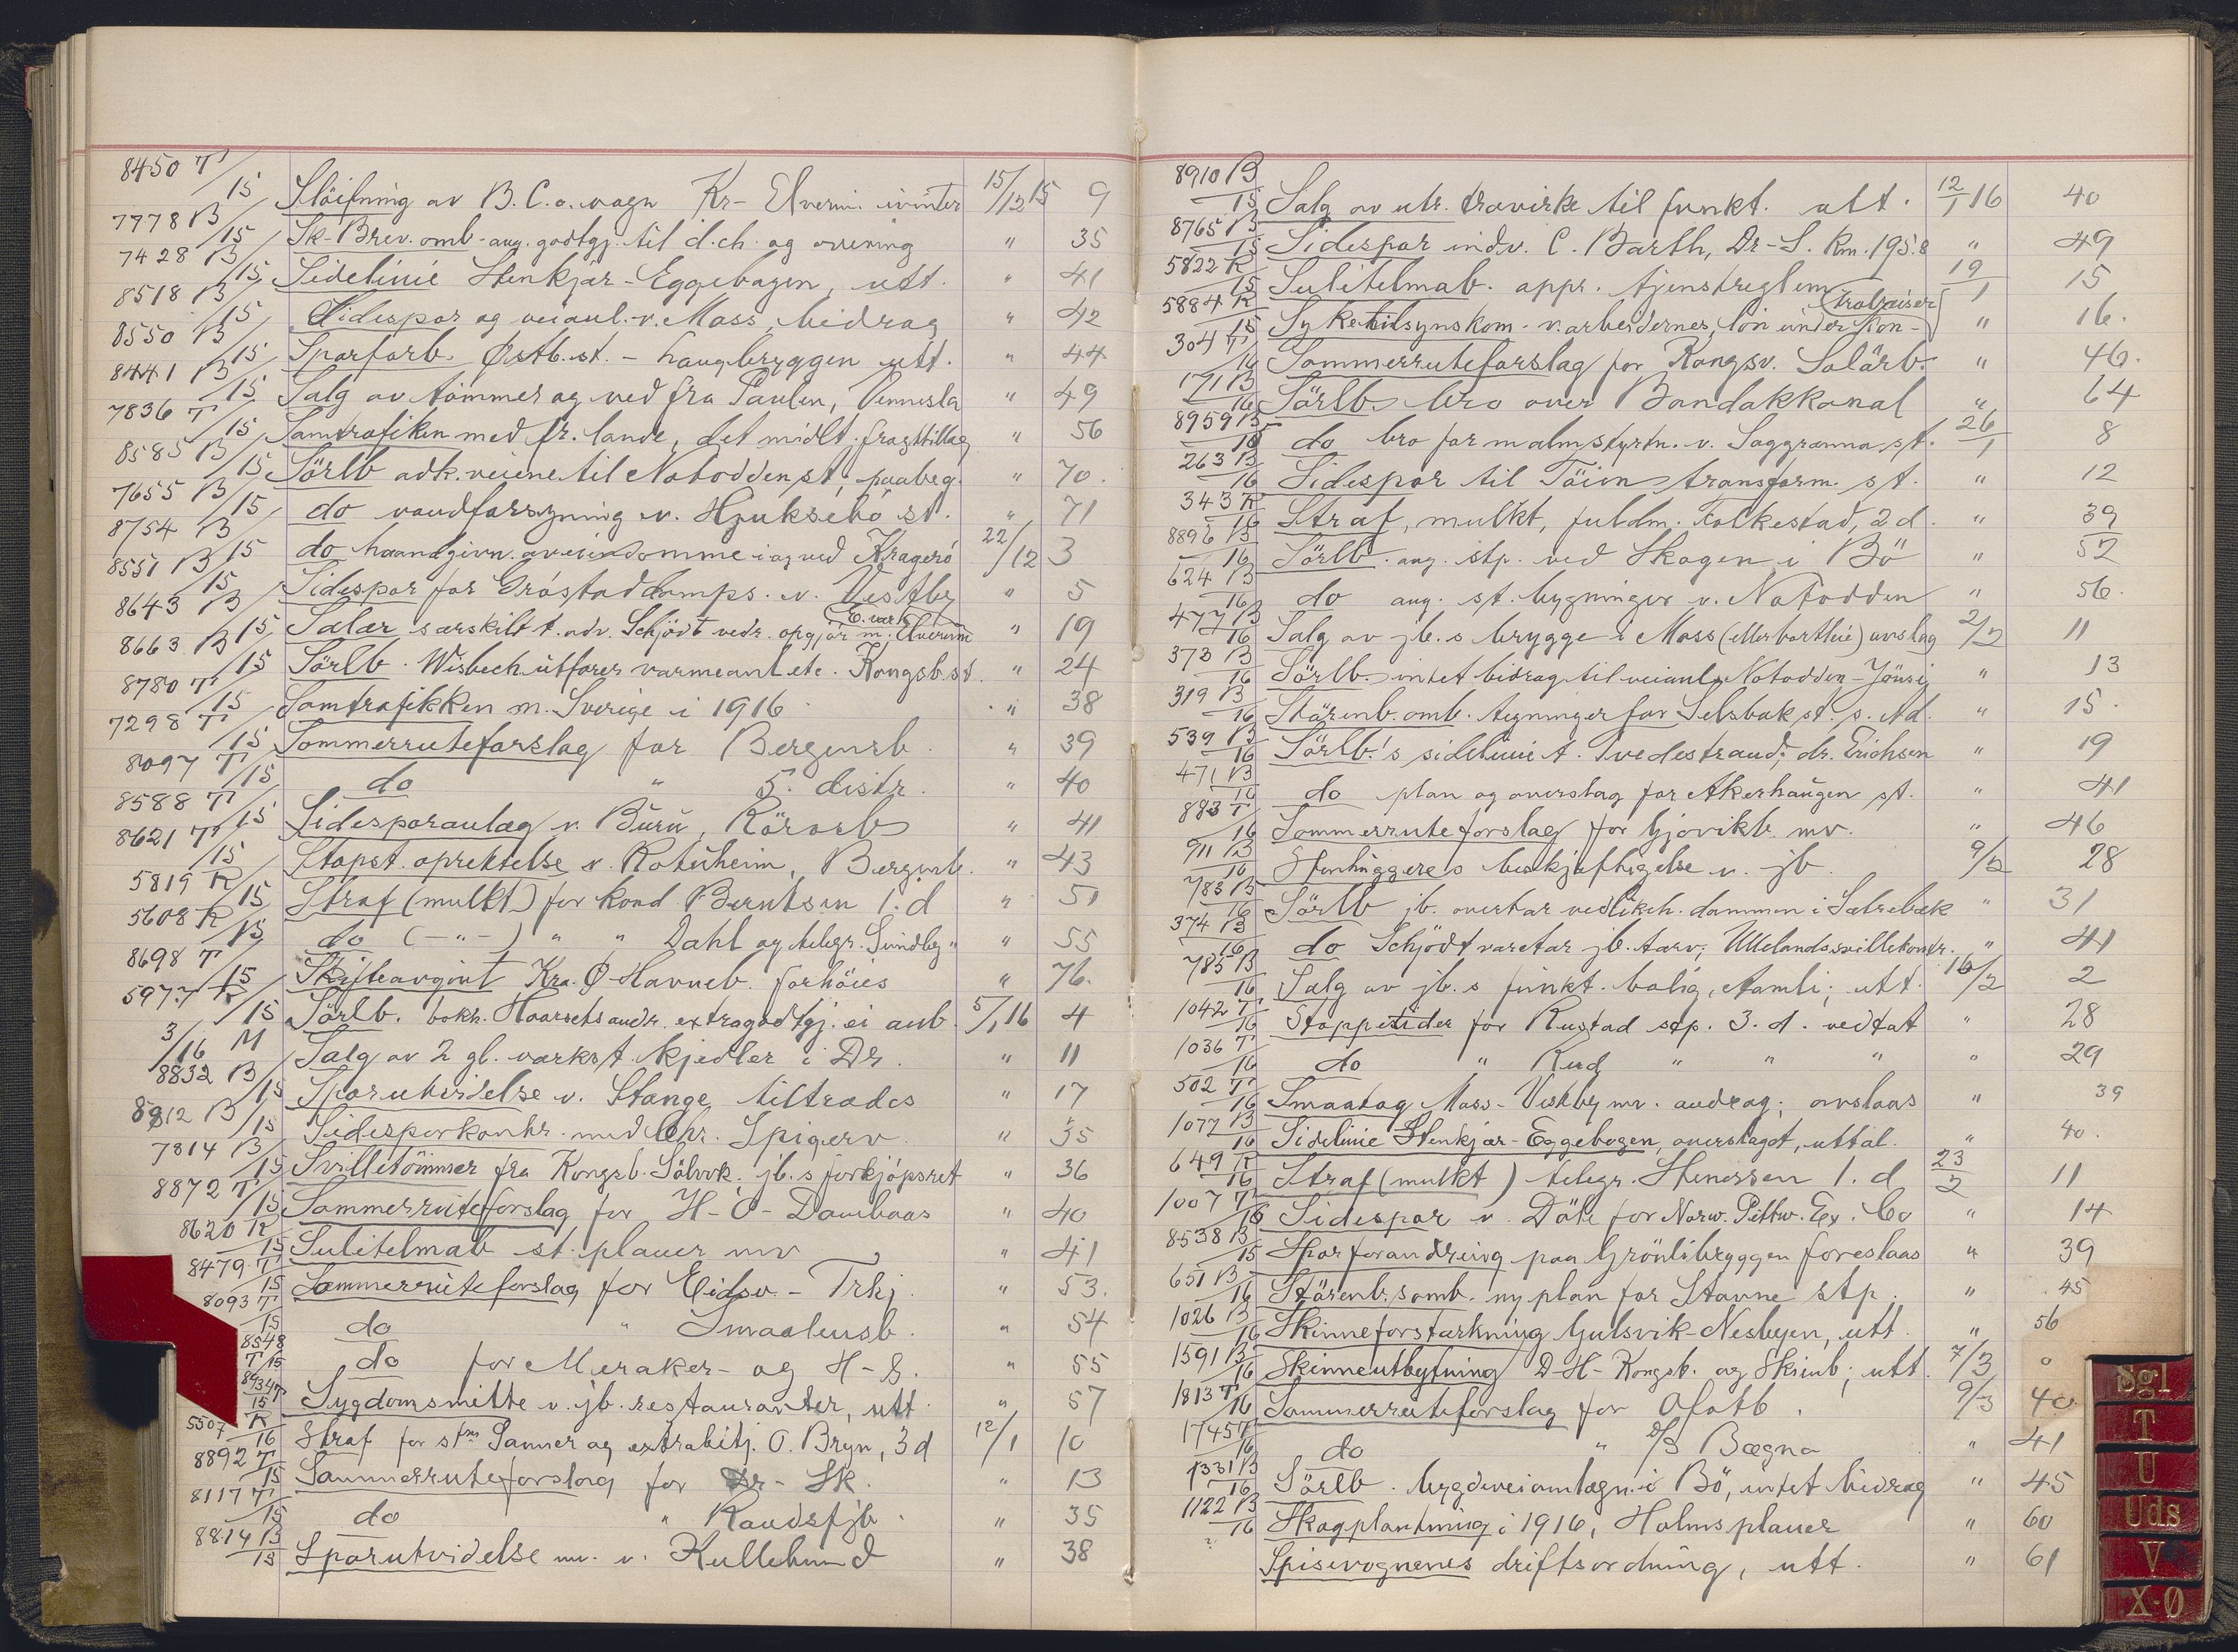 8450 T/15 Slöifning av B.C.o. vogn Kr- Elverum ivinter 15/12 15 9
7778 B/15 Sk-Brev. omb- ang. godtgj. til d.ch. og 〃 35
7428 B/15 Sidelinie Stenkjær-Eggebogen, utt. 〃 41
8518 B/15 Sidespor og veianl. v. Moss, bidrag 〃 42
8550 B/15 Sporforb. Østb.st. - Haugbryggen utt. 〃 44
8441 B/15 Salg av tömmer og ved fra Paulen, Vennesla 〃 49
7836 T/15 Samtrafiken med fr. lande, det midlt. fragttillæg 〃 56
8585 B/15 Sörlb adk.veiene til Notodden st, paabeg. 〃 70.
7655 B/15 do vandforsyning v. Hjuksebö st. 〃 71
8754 B/15 do haandgivn. av eiendomme i og ved Kragerö 22/12 3
8551 B/15 Sidespor for Gröstad damps. v. Vestby 〃 5
8643 B/15 Salær særskilt t. adv. Schjödt vedr. opgjör m. Elverum E.verk 〃 19
8663 B/15 Sörlb. Wisbech utförer varmeanl etc. Kongsb.st. 〃 24
8780 T/15 Samtrafikken m. Sverige i 1916 〃 38
7298 T/15 Sommerruteforslag for Bergensb. 〃 39
8097 T/15 do 〃 5. distr. 〃 40
8588 T/15 Sidesporanlæg v. Buru, Rörosb 〃 41
8621 T/15 Stopst. oprettelse v. Rotuheim, Bergensb. 〃 43
5819 R/15 Straf (mulkt) for kond. Berntsen 1. d 〃 51
5608 R/15 do (-〃-) 〃 〃 Dahl og telegr. Lindby 〃 〃 55
8698 T/15 Skifteavgivt Kra. Ø Havneb. forhöies 〃 76.
5977 R/15 Sörlb. bokh. Haarsets andr. extragodtgj. ei anb. 5/1 16 4
3/16 M Salg av 2 gl. verkst. kjedler i Dr. 〃 11
8832 B/15 Sporutvidelse v. Stange tiltrædes 〃 17
8812 B/15 Sidesporkontr. med Chr. Spigerv. 〃 35
7814 B/15 Svilletömmer fra Kongsb. Sölvvk. jb.s forkjöpsret 〃 36
8872 T/15 Sommerruteforslag for H-O-Dombaas 〃 40
8620 R/15 Sulitelmab st. planer mv 〃 41
8479 T/15 Sommerruteforslag for Eidsv. - Trhj. 〃 53.
8093 T/15 do 〃 Smaalensb. 〃 54
8548 T/15 do for Meraker- og H-S. 〃 55
8434 T/15 Sygdomsmitte v. jb. restauranter, utt. 〃 57
5507 R/16 Straf for stm Sanner og extrabitj. O. Bryn, 3 d 12/1 10
8892 T/15 Sommerruteforslag for Dr- Sk. 〃 13
8117 T/15 do 〃 Randsfjb. 〃 35
8814 B/15 Sporutvidelse mv. v. Kullebund 〃 38
8910 B/15 Salg av utr. trævirke til funkt. utt. 12/1 16 40
8765 B/15 Sidespor indv. C. Barth, Dr-S. Km. 195.8 〃 49
5822 R/15 Sulitelmab. appr. tjenstreglem 19/1 15
5884 R/15 Syketilsynskom. v. arbeidernes, lön under kon- trolreiser 〃 16.
304 T/16 Sommerruteforslag for Kongsv. Solörb. 〃 46.
171 B/16 Sörlb. bro over Bandakkanal 〃 64
8959 B/15 do bro for malmstyrtn. v. Saggrænna st. 26/1 8
263 B/16 Sidespor til Töien transform. st. 〃 12
343 R/16 Straf, mulkt, fuldm. Folkestad, 2 d. 〃 39
8896 B/16 Sörlb. ang. stp. ved Skogen i Bö 〃 52
624 B/16 do ang. st. bygninger v. Notodden 〃 56.
477 B/16 Salg av jb.s brygge i Moss (eller bortleie) avslag 2/2 11
373 B/16 Sörlb. intet bidrag til veianl. Notodden - Jönsj 〃 13
319 B/16 Störenb. omb. tegninger for Selsbak st. p. Nd. 〃 15.
539 B/16 Sörlb.'s sidelinie t. Tvedestrand; dr. Erichsen 〃 19
471 B/16 do plan og overslag for Akerhaugen st. 〃 41
883 T/16 Sommerruteforslag for Gjövikb. mv. 〃 46
911 B/16 Stenhuggeres beskjæftigelse v. jb. 9/2 28
783 B/16 Sörlb jb. overtar vedlikeh. dammen i Sætrebæk 〃 31
374 B/16 do Schjödt varetar jb. tarv; Ullelandssvillekontr. 〃 41
785 B/16 Salg av jb.s funkt. bolig, Aamli; utt. 16/2 2
1042 T/16 Stoppetider for Rustad stp. 3. d. vedtat 〃 28
1036 T/16 do 〃 Rud 〃 〃 〃 〃 29
502 T/16 Smaatog Moss-Vestby mv. andrag; avslaas 〃 39
1077 B/16 Sidelinie Stenkjær-Eggebogen, overslaget, uttal. 〃 40.
649 R/16 Straf (mulkt) telegr. Stenersen 1. d 23/2 11
1007 T/16 Sidespor v. Döle for Norw. Pittw. Ex. Co 〃 14
8538 B/15 Sporforandring paa Grönlibryggen foreslaas 〃 39
651 B/16 Störenb. omb. ny plan for Stavne stp. 〃 45
1026 B/16 Skinneforstærkning Gulsvik-Nesbyen, utt. 〃 56
1591 B/16 Skinneutbytning D-H-Kongsb. og Skinb; utt. 7/3 〃
1813 T/16 Sommerruteforslag for Ofotb. 9/3 40
1745 T/16 do 〃 D/S Bægna 〃 41
1331 B/16 Sörlb. bygdeveiomlægn. i Bö, intet bidrag 〃 45
1122 B/16 Skogplantning i 1916, Holms planer 〃 60
Spisevognenes driftsordning, utt. 〃 61
Sgl
T
U
Uds
V
X-Ø